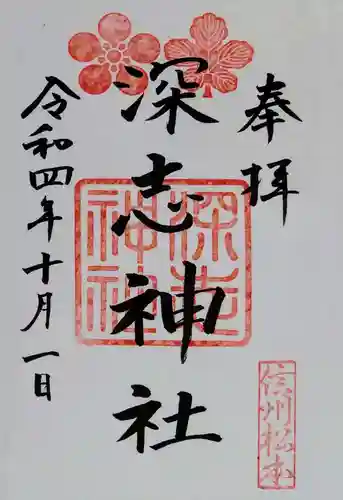 奉拝
深志神社
令和四年十月一日
深志神社
信州松本